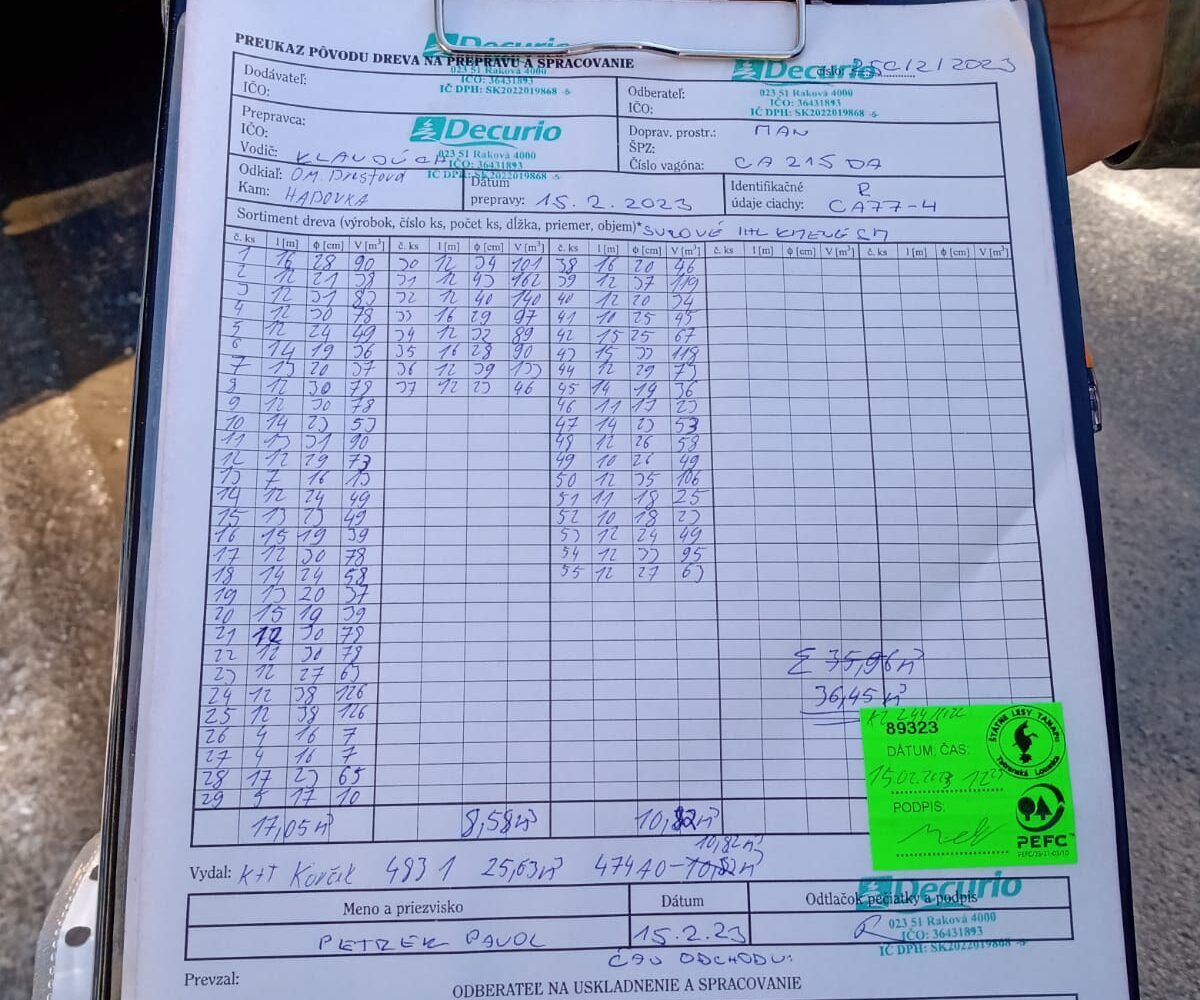 PREUKAZ PÔVODU DREVA NA PREPRAVU A SPRACOVANIE
Decurio
023 51 Raková 4000
IČO: 36431893
IČ DPH: SK2022019868 -5-
Decurio
číslo: /2/2023
023 51 Raková 4000
IČO: 36431893
IČ DPH: SK2022019868 -5-
Dodávateľ:
IČO:
Odberateľ:
IČO:
Prepravca:
IČO:
Vodič: KLAUDÚCH
Decurio
023 51 Raková 4000
IČO: 36431893
IČ DPH: SK2022019868 -5-
Doprav. prostr.: MAN
ŠPZ:
Číslo vagóna: CA 215 DA
Odkiaľ: OM. Brestová
Kam: HADOVKA
Dátum
prepravy: 15. 2. 2023
Identifikačné R
údaje ciachy: CA77-4
Sortiment dreva (výrobok, číslo ks, počet ks, dĺžka, priemer, objem)* SUROVÉ IHL KMENE
č. ks l [m] ϕ [cm] V [m³] č. ks l [m] ϕ [cm] V [m³] č. ks l [m] ϕ [cm] V [m³] č. ks l [m] ϕ [cm] V [m³] č. ks l [m] ϕ [cm] V [m³]
1 16 28 90 30 12 34 101 38 16 20 46
2 12 21 38 31 12 43 162 39 12 37 119
3 12 31 83 32 12 40 140 40 12 20 34
4 12 30 78 33 16 29 97 41 10 25 45
5 12 24 49 34 12 32 89 42 15 25 67
6 14 19 36 35 16 28 90 43 15 33 118
7 13 20 37 36 12 39 133 44 12 29 73
8 12 30 78 37 12 23 46 45 14 19 36
9 12 30 78 46 11 17 23
10 14 23 53 47 14 23 53
11 13 31 90 48 12 26 58
12 12 29 73 49 10 26 49
13 7 16 13 50 12 35 106
14 12 24 49 51 11 18 25
15 13 23 49 52 10 18 23
16 15 19 39 53 12 24 49
17 12 30 78 54 12 33 95
18 14 24 58 55 12 27 63
19 13 20 37
20 15 19 39
21 12 30 78
22 12 30 78
23 12 27 63
24 12 38 126
25 12 38 126
26 4 16 7
27 4 16 7
28 17 23 65
29 5 17 10
Σ 35,96 m³
36,45 m³
17,05 m³ 8,58 m³ 10,82 m³
10,82 m³
89323
DÁTUM, ČAS:
15.02.2023
PODPIS:
ŠTÁTNE LESY TANAPU
Tatranská Lomnica
PEFC™
PEFC/25-21-03/10
Vydal: K+T Korčík 483 1 25,63 m³ 474 A0-10,82 m³
Meno a priezvisko Dátum Odtlačok pečiatky a podpis
PETREK PAVOL 15.2.23 R
Decurio
023 51 Raková 4000
IČO: 36431893
IČ DPH: SK2022019868 -5-
ČAS ODCHODU:
Prevzal:
ODBERATEĽ NA USKLADNENIE A SPRACOVANIE